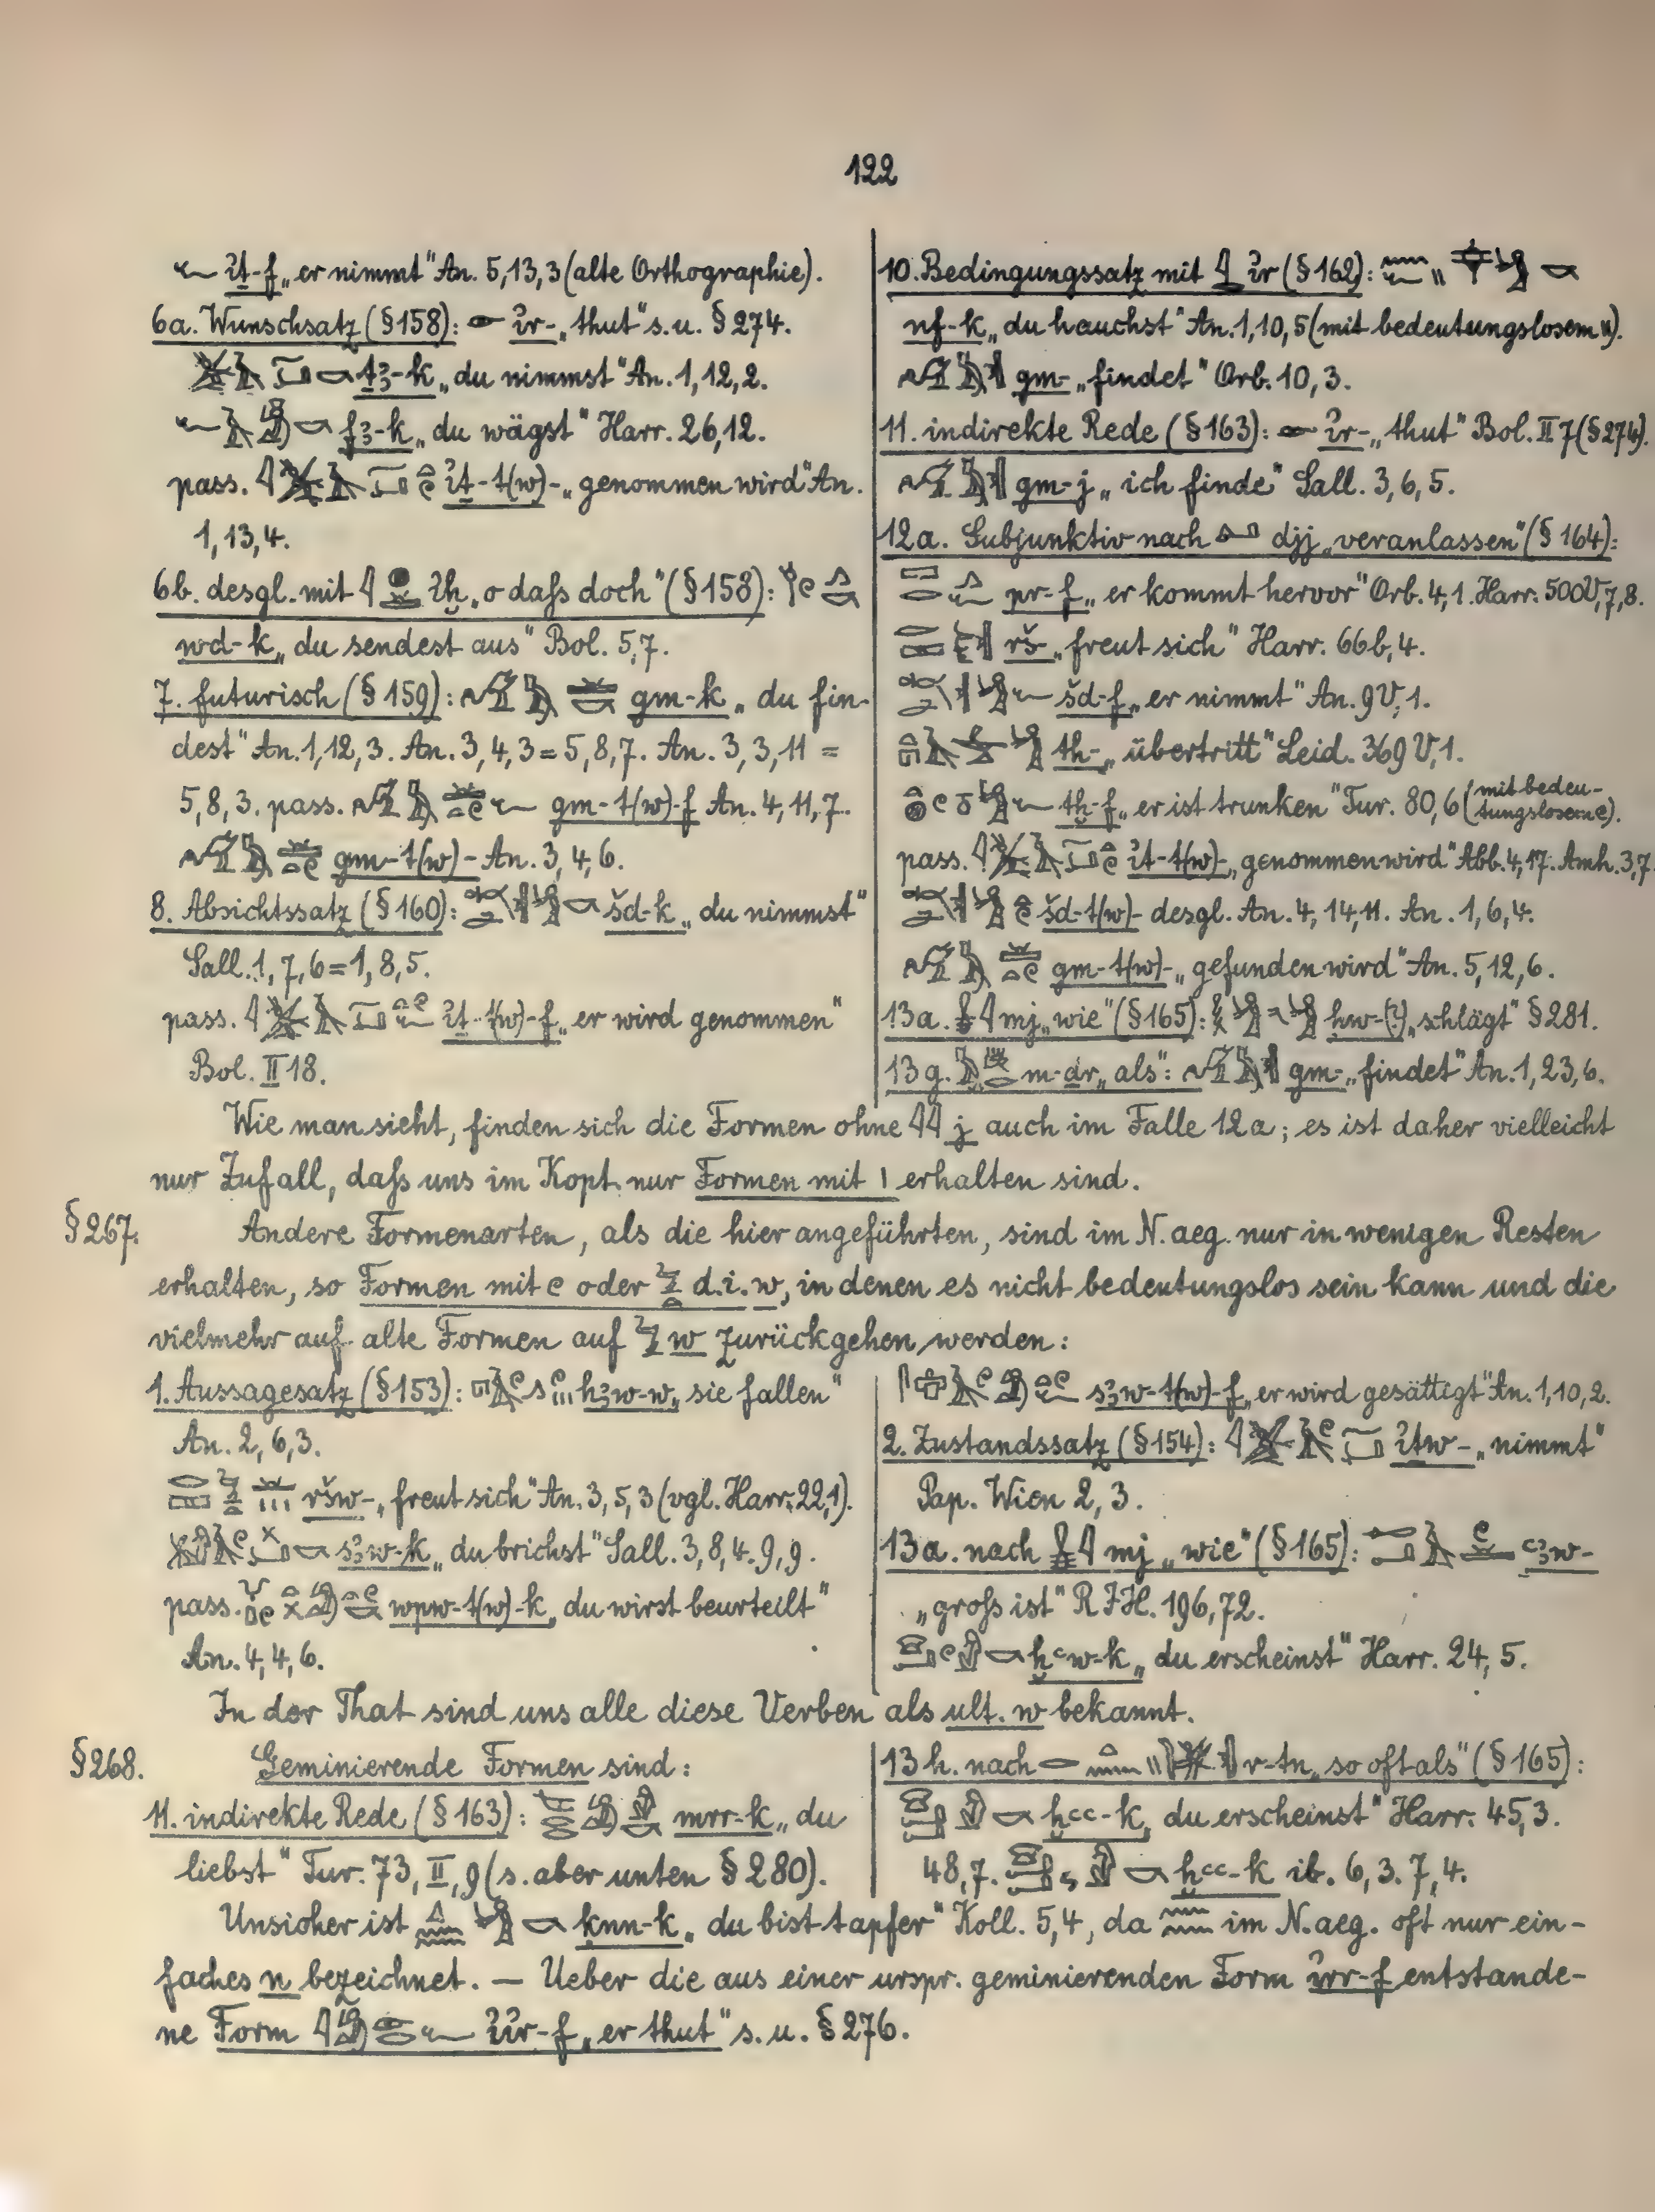 122
it-f „er nimmt" An. 5,13,3 (alte Orthographie).
6a. Wunschsatz (§158): ir- „thut" s.u. §274.
ṯꜣ-k „du nimmst" An. 1,12,2.
fꜣ-k „du wägst" Harr. 26,12.
pass. iṯ-t(w)- „genommen wird" An.
1,13,4.
6b. desgl. mit iḫ „o daſs doch" (§158):
wd-k „du sendest aus" Bol. 5,7.
7. futurisch (§159): gm-k „du fin-
dest" An. 1,12,3. An. 3,4,3 = 5,8,7. An. 3,3,11 =
5,8,3. pass. gm-t(w)-f An. 4,11,7.
gm-t(w)- An. 3,4,6.
8. Absichtssatz (§160): šd-k „du nimmst"
Sall. 1,7,6 = 1,8,5.
pass. iṯ-t(w)-f „er wird genommen"
Bol. II 18.
10. Bedingungssatz mit ir (§162):
nf-k „du hauchst" An. 1,10,5 (mit bedeutungslosem ").
gm- „findet" Orb. 10,3.
11. indirekte Rede (§163): ir- „thut" Bol. II 7 (§274).
gm-j „ich finde" Sall. 3,6,5.
12a. Subjunktiv nach djj „veranlassen" (§164):
pr-f „er kommt hervor" Orb. 4,1. Harr. 500V, 7,8.
rš- „freut sich" Harr. 66b,4.
šd-f „er nimmt" An. 9V,1.
th- „übertritt" Leid. 369V,1.
tḫ-f „er ist trunken" Tur. 80,6 (mit bedeu-
tungslosem e).
pass. iṯ-t(w)- „genommen wird" Abb. 4,17. Amh. 3,7.
šd-t(w)- desgl. An. 4,14,11. An. 1,6,4.
gm-t(w)- „gefunden wird" An. 5,12,6.
13a. mj „wie" (§165): ḥw-(?) „schlägt" §281.
13g. m-dr „als": gm- „findet" An. 1,23,6.
Wie man sieht, finden sich die Formen ohne j auch im Falle 12a; es ist daher vielleicht
nur Zufall, daſs uns im Kopt. nur Formen mit ı erhalten sind.
§267. Andere Formenarten, als die hier angeführten, sind im N.aeg. nur in wenigen Resten
erhalten, so Formen mit e oder d.i. w, in denen es nicht bedeutungslos sein kann und die
vielmehr auf alte Formen auf w zurückgehen werden:
1. Aussagesatz (§153): hꜣw-w „sie fallen"
An. 2,6,3.
ršw- „freut sich" An. 3,5,3 (vgl. Harr. 22,1).
sꜣw-k „du brichst" Sall. 3,8,4. 9,9.
pass. wpw-t(w)-k „du wirst beurteilt"
An. 4,4,6.
sꜣw-t(w)-f „er wird gesättigt" An. 1,10,2.
2. Zustandssatz (§154): iṯw- „nimmt"
Pap. Wien 2,3.
13a. nach mj „wie" (§165): ꜥꜣw-
„groſs ist" RJH. 196,72.
ḫꜥw-k „du erscheinst" Harr. 24,5.
In der That sind uns alle diese Verben als ult. w bekannt.
§268. Geminierende Formen sind:
11. indirekte Rede (§163): mrr-k „du
liebst" Tur. 73,II,9 (s. aber unten §280).
13h. nach r-tn „so oft als" (§165):
ḫꜥꜥ-k „du erscheinst" Harr. 45,3.
48,7. ḫꜥꜥ-k ib. 6,3. 7,4.
Unsicher ist ḳnn-k „du bist tapfer" Koll. 5,4, da im N.aeg. oft nur ein-
faches n bezeichnet. — Ueber die aus einer urspr. geminierenden Form irr-f entstande-
ne Form iir-f „er thut" s.u. §276.